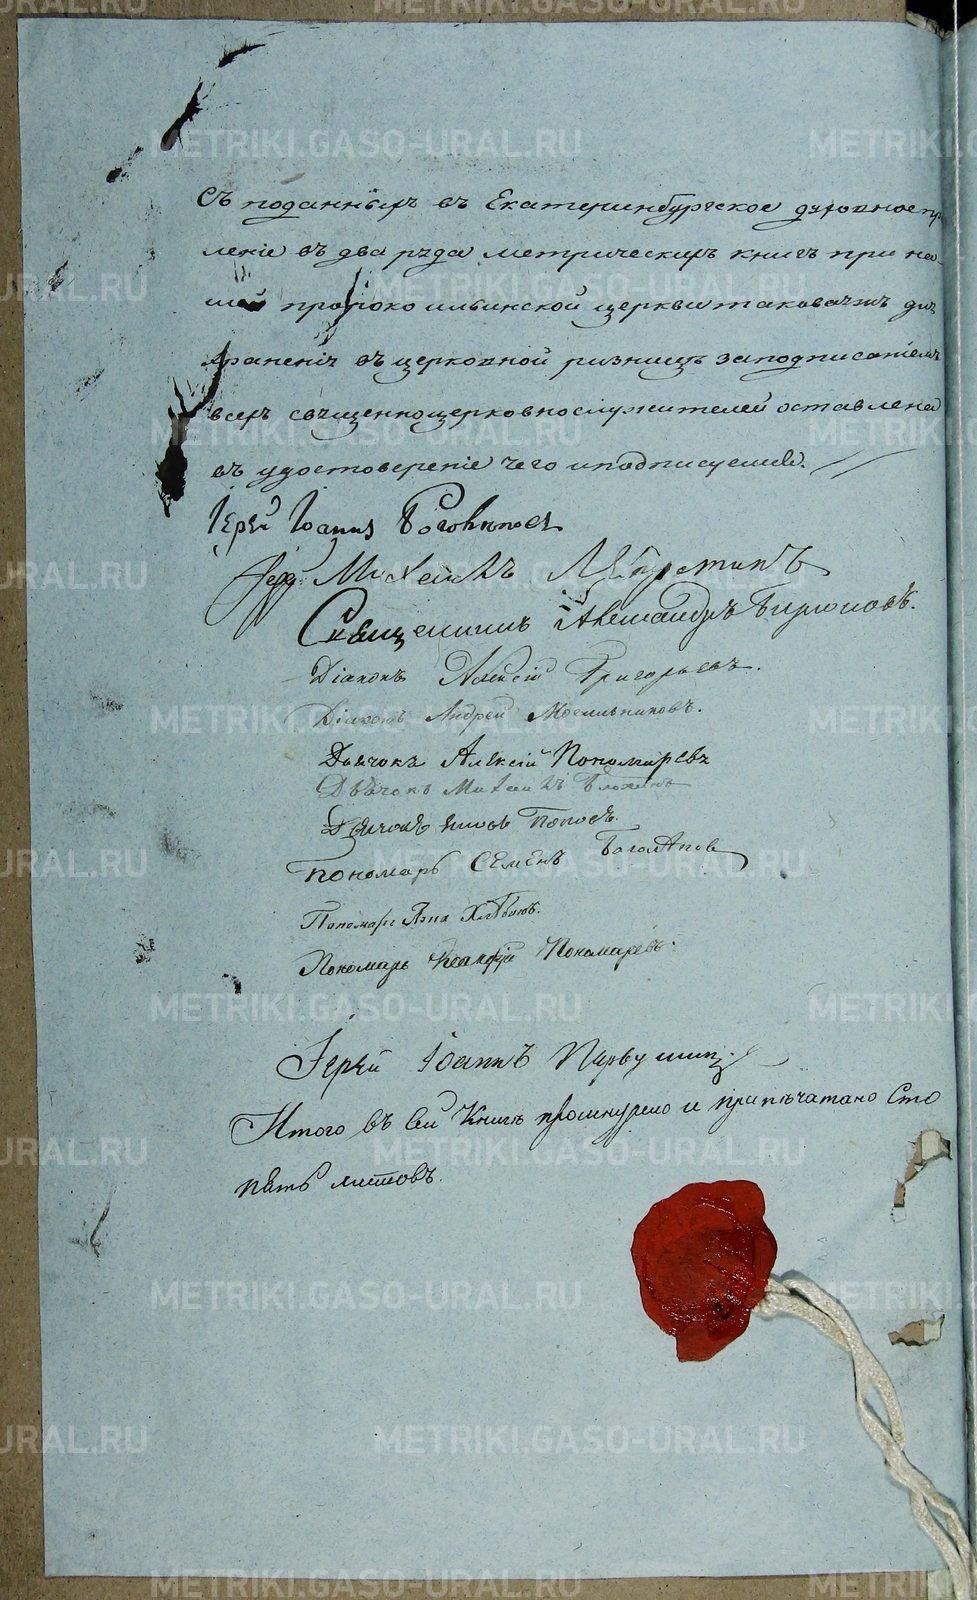 Съ поданныхъ въ Екатеринбургское духовное пр
ленiе въ два ряда метрическихъ книгъ при на-
шей пророко ильинской церкви таковаяжъ для
храненiя въ церковной ризницѣ заподписанiемъ
всехъ священноцерковнослужителей оставлена
въ удостоверенiе чего иподписуемся.
Iерей Iоаннъ
Iерей Михаилъ
Священникъ Александръ Бирюковъ.
Дiаконъ Алексiй Григорьевъ.
Дiаконъ Андрей Могильниковъ.
Дьячокъ Алексiй Пономаревъ
Дьячокъ Михаилъ
Дьячокъ Попов
Пономарь Семенъ
Пономарь
Пономарь Пономаревъ.
Iерей Iоаннъ Первушинъ
Итого въ сей Книгѣ прошнурено и припѣчатано Сто
пять листовъ.
METRIKI.GASO-URAL.RU